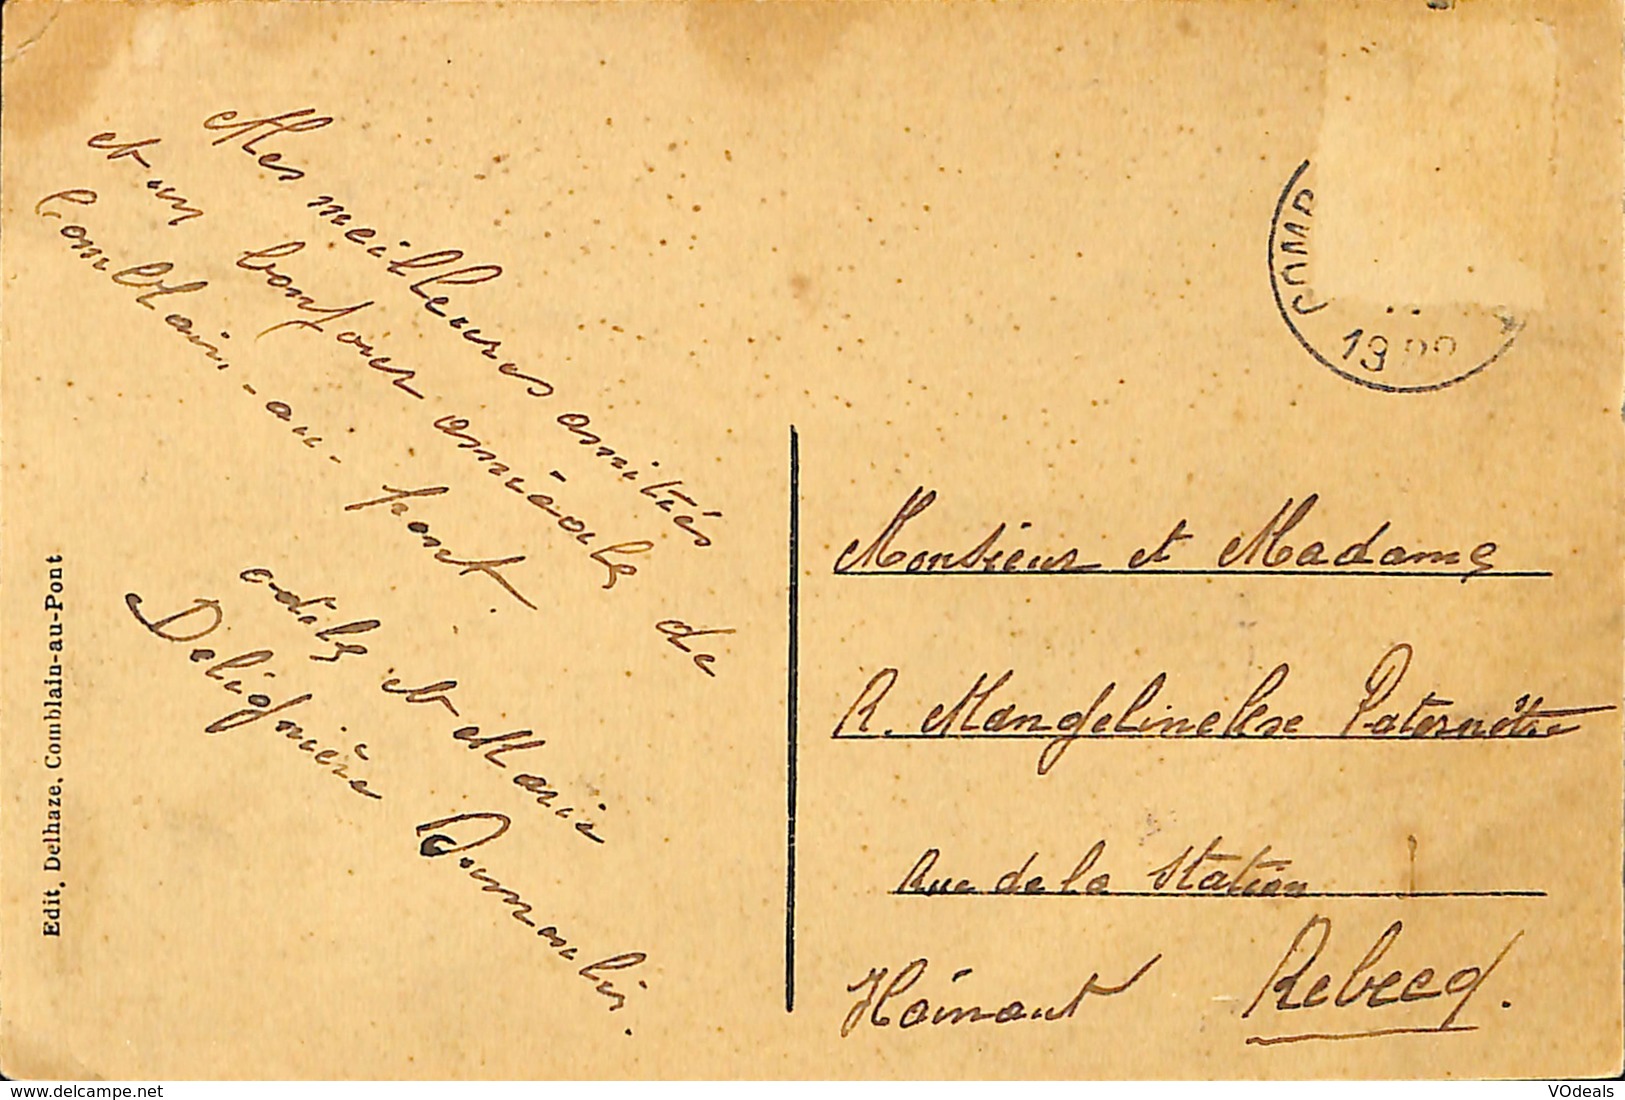 Mes meilleures amitiés de
et un bonjour amicale
Comblain-au-pont.
odile et Marie
Delignière Dumoulin.
Edit, Delhaze, Comblain-au-Pont
COMB
19
Monsieur et Madame
R. Mangelinckse Paternôtre
Rue de la Station
Hainaut Rebecq.
www.delcampe.net
VOdeals